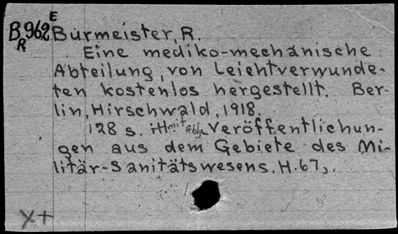 E
B 962 Burmeister, R.
R
Eine mediko-mechanische
Abteilung, von Leichtverwunde-
ten kostenlos hergestellt. Ber-
lin, Hirschwald, 1918.
128 s. mit Abb. Veröffentlichun-
gen aus dem Gebiete des Mi-
litär-Sanitätswesens. H. 67.
X+